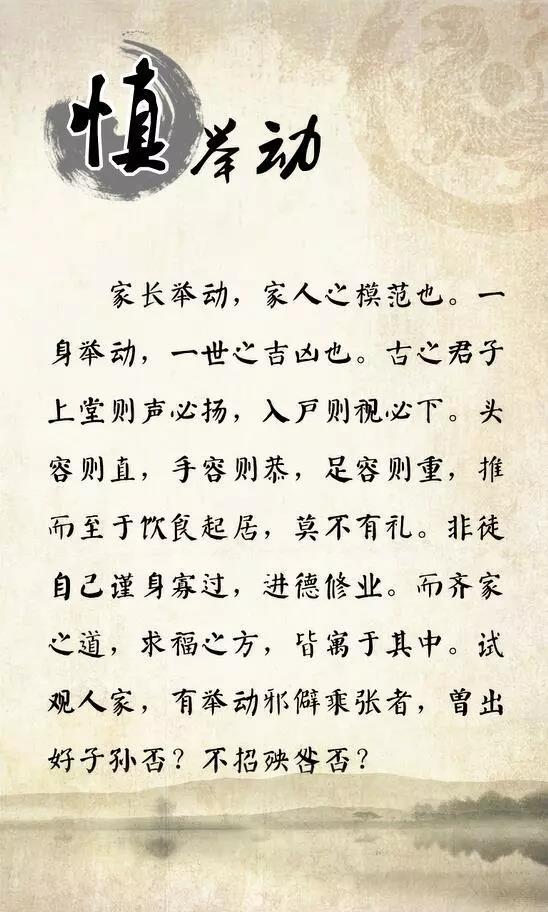 慎举动
家长举动，家人之模范也。一
身举动，一世之吉凶也。古之君子
上堂则声必扬，入户则视必下。头
容则直，手容则恭，足容则重，推
而至于饮食起居，莫不有礼。非徒
自己谨身寡过，进德修业。而齐家
之道，求福之方，皆寓于其中。试
观人家，有举动邪僻乘张者，曾出
好子孙否？不招殃咎否？